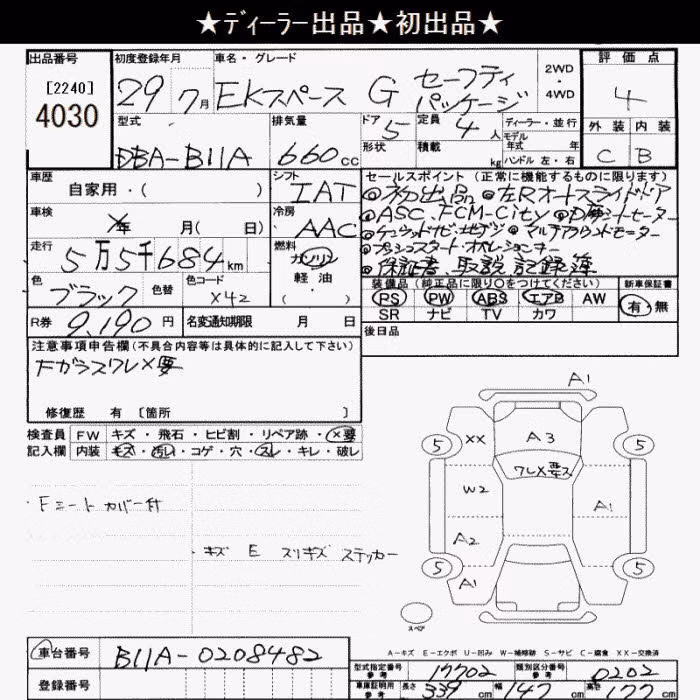 ★ディーラー出品★初出品★
出品番号 初度登録年月 車名・グレード 評価点
[2240] 4030
29年 7月 EKスペース G セーフティパッケージ 2WD・4WD 4
型式 排気量 ドア 定員 ディーラー・並行 外装 内装
DBA-B11A 660cc 5 4人 モデル年式 年式 C B
形状 積載 kg ハンドル 左・右
車歴 シフト セールスポイント(正常に機能するものに限ります)
自家用・( ) IAT ◎初出品 ◎左Rオートスライドドア
車検 冷房 ◎ASC、FCM-City ◎D席シートヒーター
年 月( 日) AAC
走行 燃料 マルチアラウンドモニター
5万5千684km ガソリン ◎プッシュスタート・オペレーションキー
色 色替 色コード 軽油 ◎保証書、取説、記録簿
ブラック X42 ( )
装備品(純正品に限り○をつけてください) 新車保証書
PS PW ABS エアB AW 有・無
R券 9,190円 名変通知期限 月 日 SR ナビ TV カワ
後日品
注意事項申告欄(不具合内容等は具体的に記入して下さい)
FガラスワレX要
修復歴 有 〔箇所 〕
検査員 FW キズ・飛石・ヒビ割・リペア跡・X要
記入欄 内装 キズ・汚れ・コゲ・穴・スレ・キレ・破レ
Fシートカバー付
・キズ E スリキズ ステッカー
A1
5 XX A3 5
ワレX要ス
W2 A1
A2
5 5
A1
スペア
A-キズ E-エクボ U-凹み W-補修跡 S-サビ C-腐食 XX-交換済
車台番号 B11A-0208482 型式指定番号 参考 17702 類別区分番号 参考 0202
登録番号 車庫証明用 参考 長さ 339cm 幅 147cm 高さ 177cm